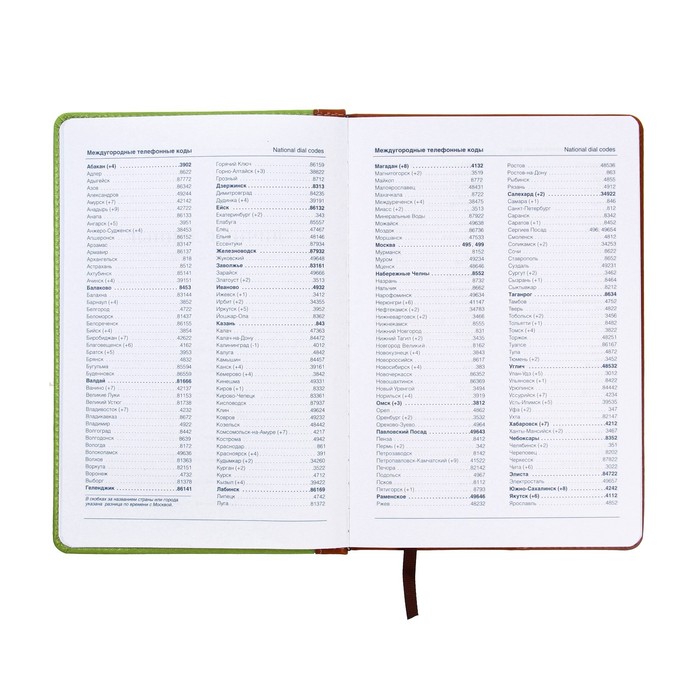 Междугородные телефонные коды National dial codes
Абакан (+4) 3902
Адлер 8622
Адыгейск 87772
Азов 86342
Александров 49244
Амурск (+7) 42142
Анадырь (+9) 42722
Анапа 86133
Ангарск (+5) 3951
Анжеро-Судженск (+4) 38453
Апшеронск 86152
Арзамас 83147
Армавир 86137
Архангельск 818
Астрахань 8512
Ахтубинск 85141
Ачинск (+4) 39151
Балаково 8453
Балахна 83144
Барнаул (+4) 3852
Белгород 4722
Беломорск 81437
Белореченск 86155
Бийск (+4) 3854
Биробиджан (+7) 42622
Благовещенск (+6) 4162
Братск (+5) 3953
Брянск 4832
Бугульма 85594
Буденновск 86559
Валдай 81666
Ванино (+7) 42137
Великие Луки 81153
Великий Устюг 81738
Владивосток (+7) 4232
Владикавказ 8672
Владимир 4922
Волгоград 8442
Волгодонск 8639
Вологда 8172
Волоколамск 49636
Волхов 81363
Воркута 82151
Воронеж 4732
Выборг 81378
Геленджик 86141
В скобках за названием страны или города
указана разница по времени с Москвой.
Горячий Ключ 86159
Горно-Алтайск (+3) 38822
Грозный 8712
Дзержинск 8313
Димитровград 84235
Дудинка (+4) 39191
Ейск 86132
Екатеринбург (+2) 343
Елабуга 85557
Елец 47467
Ельня 48146
Ессентуки 87934
Железноводск 87932
Жуковский 49648
Заволжье 83161
Зарайск 49666
Златоуст (+2) 3513
Иваново 4932
Ижевск (+1) 3412
Ирбит (+2) 34355
Иркутск (+5) 3952
Йошкар-Ола 8362
Казань 843
Калач 47363
Калач-на-Дону 84472
Калининград (-1) 4012
Калуга 4842
Камышин 84457
Канск (+4) 39161
Кемерово (+4) 3842
Кинешма 49331
Киров (+1) 8332
Кирово-Чепецк 83361
Кисловодск 87937
Клин 49624
Ковров 49232
Коломна 49661
Комсомольск-на-Амуре (+7) 4217
Кострома 4942
Краснодар 861
Красноярск (+4) 391
Кудымкар (+2) 34260
Курган (+2) 3522
Курск 4712
Кызыл (+4) 39422
Лабинск 86169
Липецк 4742
Луга 81372
Междугородные телефонные коды National dial codes
Магадан (+8) 4132
Магнитогорск (+2) 3519
Майкоп 8772
Малоярославец 48431
Махачкала 8722
Междуреченск (+4) 38475
Миасс (+2) 3513
Минеральные Воды 87922
Можайск 49638
Моздок 86736
Моршанск 47533
Москва 495, 499
Мурманск 8152
Муром 49234
Мценск 48646
Набережные Челны 8552
Назрань 8732
Нальчик 8662
Нарофоминск 49634
Нерюнгри (+6) 41147
Нефтекамск (+2) 34783
Нижневартовск (+2) 3466
Нижнекамск 8555
Нижний Новгород 831
Нижний Тагил (+2) 3435
Новгород Великий 8162
Новокузнецк (+4) 3843
Новороссийск 8617
Новосибирск (+4) 383
Новочеркасск 86352
Новошахтинск 86369
Новый Уренгой 3494
Норильск (+4) 3919
Омск (+3) 3812
Орел 4862
Оренбург (+2) 3532
Орехово-Зуево 4964
Павловский Посад 49643
Пенза 8412
Пермь (+2) 342
Петрозаводск 8142
Петропавловск-Камчатский (+9) 41522
Печора 82142
Подольск 4967
Псков 8112
Пятигорск (+1) 8793
Раменское 49646
Ржев 48232
Ростов 48536
Ростов-на-Дону 863
Рыбинск 4855
Рязань 4912
Салехард (+2) 34922
Самара (+1) 846
Санкт-Петербург 812
Саранск 8342
Саратов (+1) 8452
Сергиев Посад 496, 49654
Смоленск 4812
Соликамск (+2) 34253
Сочи 8622
Ставрополь 8652
Суздаль 49231
Сургут (+2) 3462
Сызрань (+1) 8464
Сыктывкар 8212
Таганрог 8634
Тамбов 4752
Тверь 4822
Тобольск (+2) 3456
Тольятти (+1) 8482
Томск (+4) 3822
Торжок 48251
Туапсе 86167
Тула 4872
Тюмень (+2) 3452
Углич 48532
Улан-Удэ (+5) 3012
Ульяновск (+1) 8422
Урюпинск 84442
Уссурийск (+7) 4234
Усть-Илимск (+5) 39535
Уфа (+2) 347
Хабаровск (+7) 4212
Ханты-Мансийск (+2) 3467
Чебоксары 8352
Челябинск (+2) 351
Череповец 8202
Черкесск 87822
Чита (+6) 3022
Элиста 84722
Электросталь 49657
Южно-Сахалинск (+8) 4242
Якутск (+6) 4112
Ярославль 4852